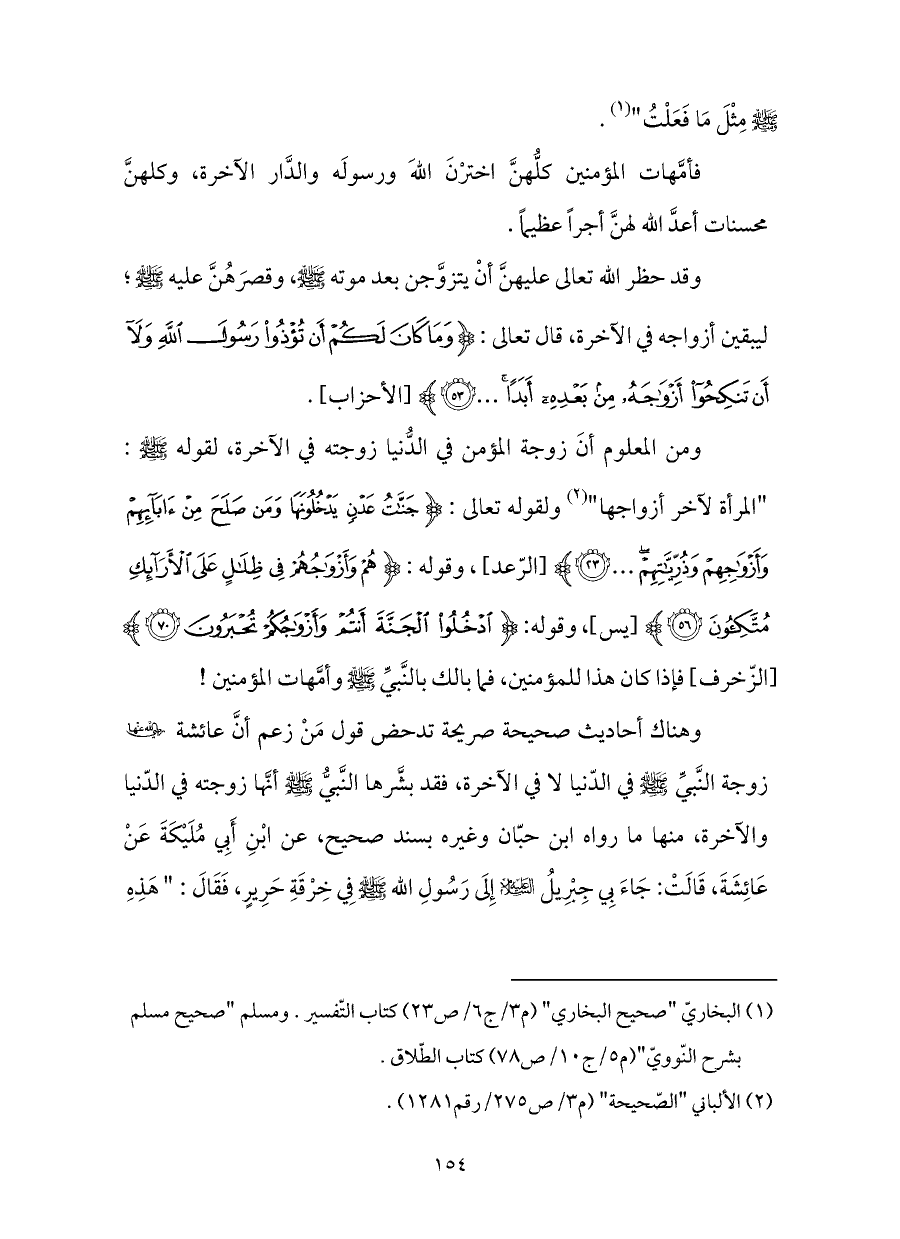 ﷺ مِثْلَ مَا فَعَلْتُ"(١) .
فأمَّهات المؤمنين كلُّهنَّ اخترْنَ اللهَ ورسولَه والدَّار الآخرة، وكلهنَّ
محسنات أعدَّ الله لهنَّ أجراً عظيماً .
وقد حظر الله تعالى عليهنَّ أنْ يتزوَّجن بعد موته ﷺ، وقصرَهُنَّ عليه ﷺ ؛
ليبقين أزواجه في الآخرة، قال تعالى : ﴿ وَمَا كَانَ لَكُمْ أَن تُؤْذُوا۟ رَسُولَ ٱللَّهِ وَلَآ
أَن تَنكِحُوٓا۟ أَزْوَٰجَهُۥ مِنۢ بَعْدِهِۦٓ أَبَدًا ۚ ... ٥٣ ﴾ [الأحزاب] .
ومن المعلوم أنَ زوجة المؤمن في الدُّنيا زوجته في الآخرة، لقوله ﷺ :
"المرأة لآخر أزواجها"(٢) ولقوله تعالى : ﴿ جَنَّٰتُ عَدْنٍ يَدْخُلُونَهَا وَمَن صَلَحَ مِنْ ءَابَآئِهِمْ
وَأَزْوَٰجِهِمْ وَذُرِّيَّٰتِهِمْ ۖ ... ٢٣ ﴾ [الرّعد] ، وقوله : ﴿ هُمْ وَأَزْوَٰجُهُمْ فِى ظِلَٰلٍ عَلَى ٱلْأَرَآئِكِ
مُتَّكِـُٔونَ ٥٦ ﴾ [يس]، وقوله: ﴿ ٱدْخُلُوا۟ ٱلْجَنَّةَ أَنتُمْ وَأَزْوَٰجُكُمْ تُحْبَرُونَ ٧٠ ﴾
[الزّخرف] فإذا كان هذا للمؤمنين، فما بالك بالنَّبيِّ ﷺ وأمَّهات المؤمنين !
وهناك أحاديث صحيحة صريحة تدحض قول مَنْ زعم أنَّ عائشة رضي الله عنها
زوجة النَّبيِّ ﷺ في الدّنيا لا في الآخرة، فقد بشَّرها النَّبيُّ ﷺ أنَّها زوجته في الدّنيا
والآخرة، منها ما رواه ابن حبّان وغيره بسند صحيح، عن ابْنِ أَبِي مُلَيْكَةَ عَنْ
عَائِشَةَ، قَالَتْ: جَاءَ بِي جِبْرِيلُ عليه السلام إِلَى رَسُولِ الله ﷺ فِي خِرْقَةِ حَرِيرٍ، فَقَالَ : " هَذِهِ
(١) البخاريّ "صحيح البخاري" (م٣/ ج٦/ ص٢٣) كتاب التّفسير . ومسلم "صحيح مسلم
بشرح النّوويّ"(م٥/ ج١٠/ ص٧٨) كتاب الطّلاق .
(٢) الألباني "الصّحيحة" (م٣/ ص٢٧٥/ رقم١٢٨١) .
١٥٤